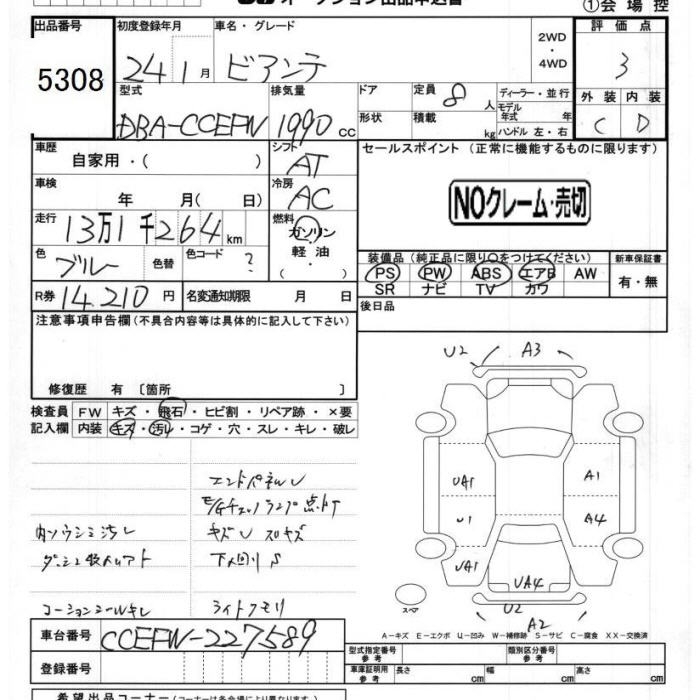 オークション出品申込書
①会場控
出品番号 初度登録年月 車名・グレード 2WD・4WD 評価点
5308 24 1月 ビアンテ 3
型式 排気量 ドア 定員 8人 ディーラー・並行 外装 内装
DBA-CCEFW 1990cc 形状 積載 kg モデル年式 年 ハンドル 左・右 C D
車歴 シフト セールスポイント(正常に機能するものに限ります)
自家用・( ) AT
車検 冷房 NOクレーム・売切
年 月( 日) AC
走行 13万1千264km 燃料
ガソリン・軽油・
色 ブルー 色替 色コード ? ( )
装備品(純正品に限り○をつけてください) 新車保証書
PS PW ABS エアB AW 有・無
SR ナビ TV カワ
R券 14.210円 名変通知期限 月 日 後日品
注意事項申告欄(不具合内容等は具体的に記入して下さい)
修復歴 有 [箇所 ]
検査員 FW キズ・飛石・ヒビ割・リペア跡・×要
記入欄 内装 キズ・汚れ・コゲ・穴・スレ・キレ・破レ
U2 A3
エンドパネルU
E/Gチェックランプ点灯
内ソウシミ汚レ キズU スリキズ
下廻りS
コーションシールキレ ライトクモリ
UA1 A1
U1 A4
UA1
UA4
U2
スペア A2
A-キズ E-エクボ U-凹み W-補修跡 S-サビ C-腐食 XX-交換済
車台番号 CCEFW-227589
登録番号
型式指定番号 参考 類別区分番号 参考
車庫証明用 参考 長さ cm 幅 cm 高さ cm
希望出品コーナー(コーナーは各会場により異なります)